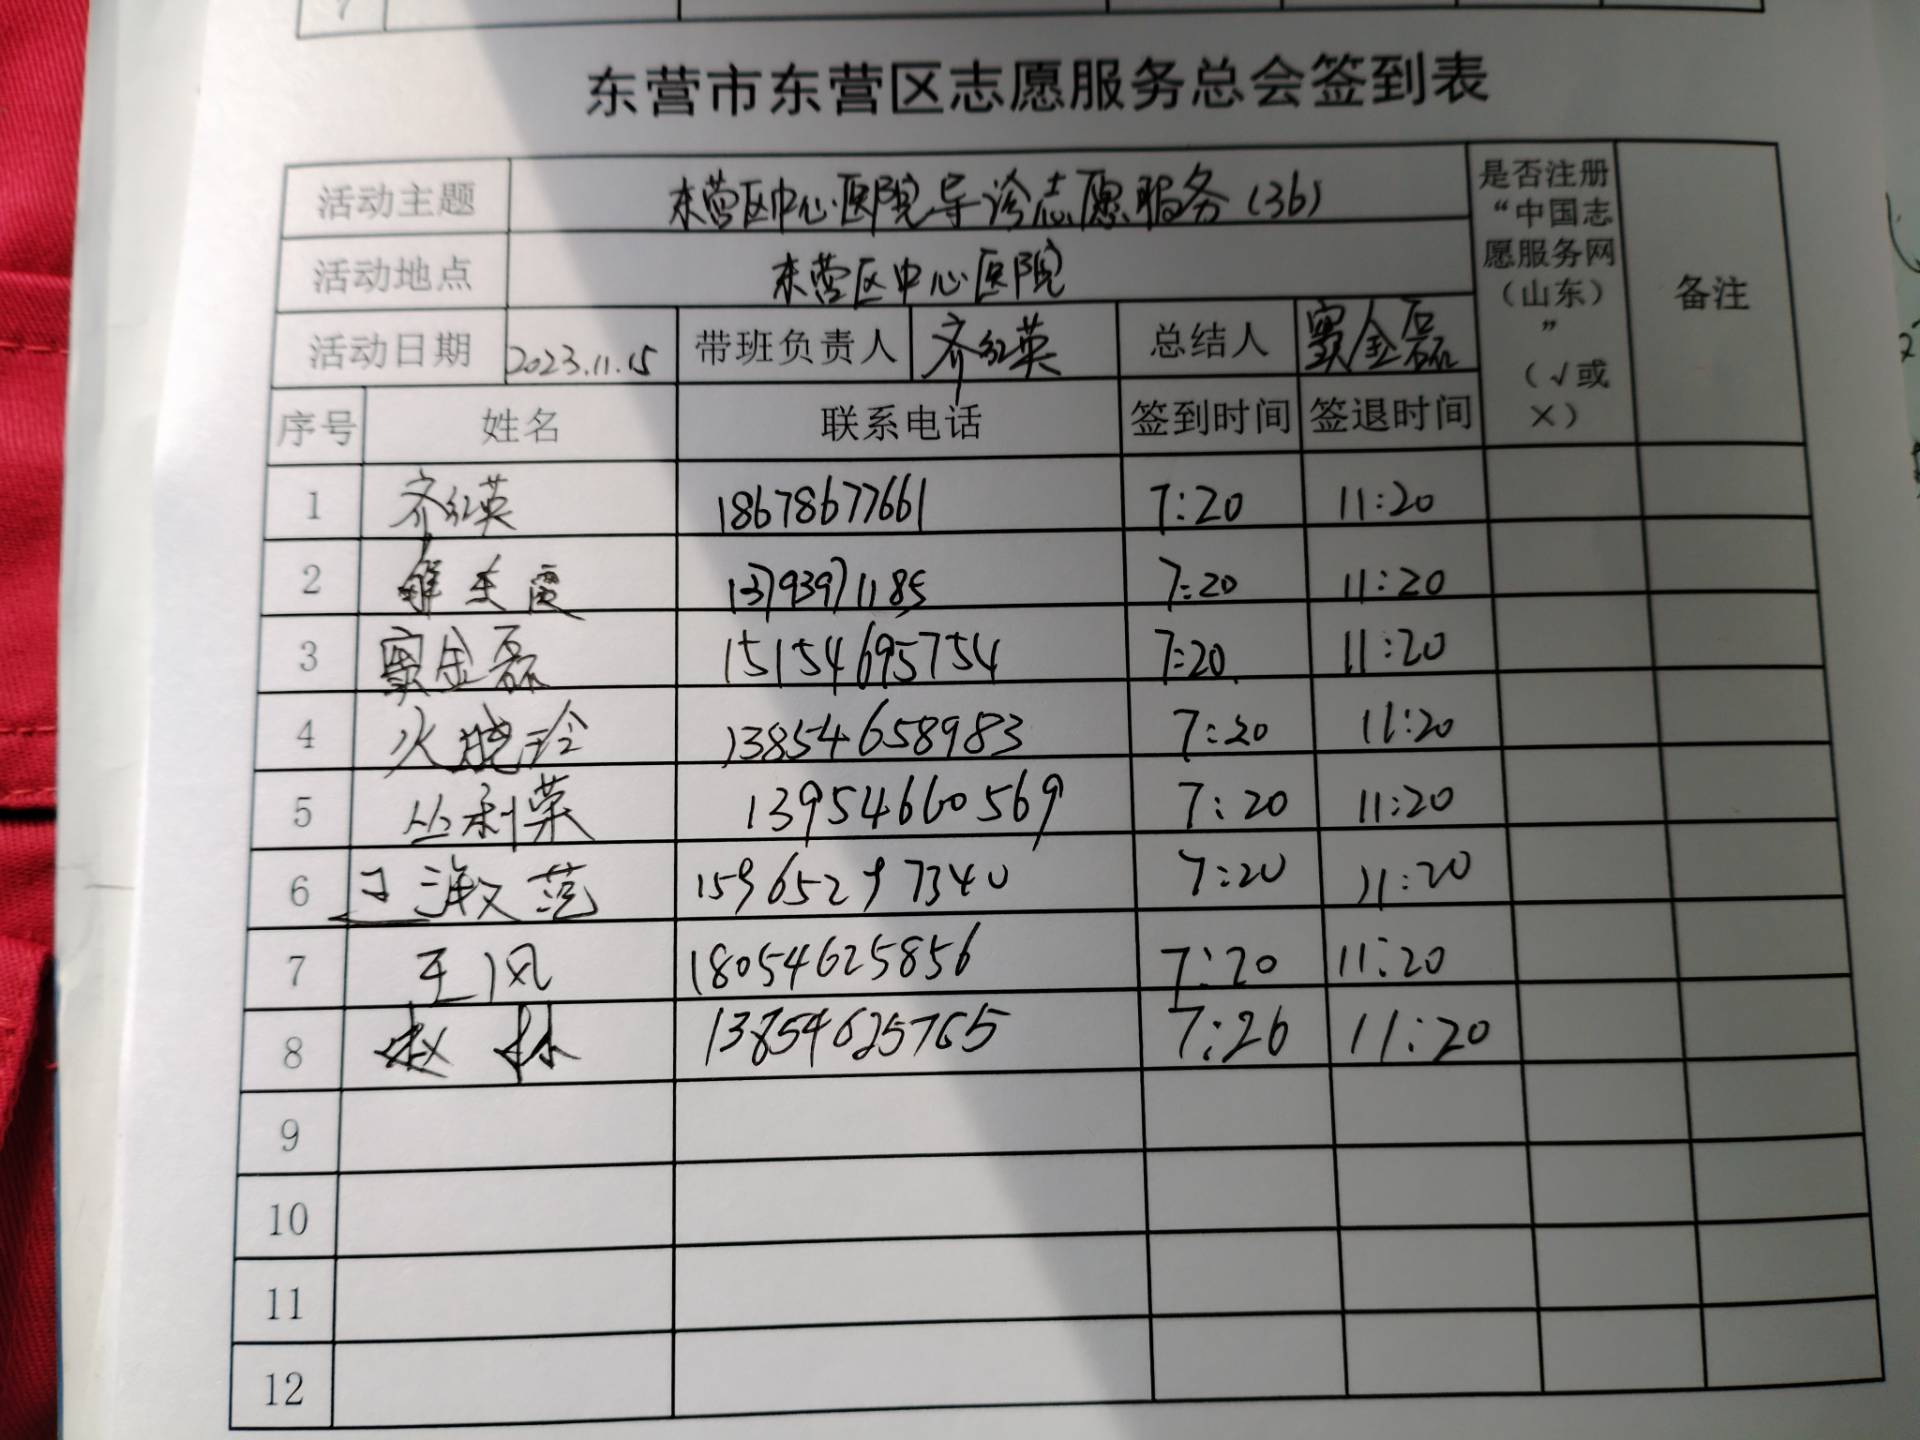 7
东营市东营区志愿服务总会签到表
活动主题 东营区中心医院导诊志愿服务(36) 是否注册“中国志愿服务网(山东)”(√或×) 备注
活动地点 东营区中心医院
活动日期 2023.11.15 带班负责人 齐红英 总结人 窦金磊
序号 姓名 联系电话 签到时间 签退时间
1 齐红英 18678677661 7:20 11:20
2 13793971185 7:20 11:20
3 窦金磊 15154695754 7:20 11:20
4 火晓玲 13854658983 7:20 11:20
5 丛利荣 13954660569 7:20 11:20
6 15965297340 7:20 11:20
7 王风 18054625856 7:20 11:20
8 赵林 13854625765 7:26 11:20
9
10
11
12